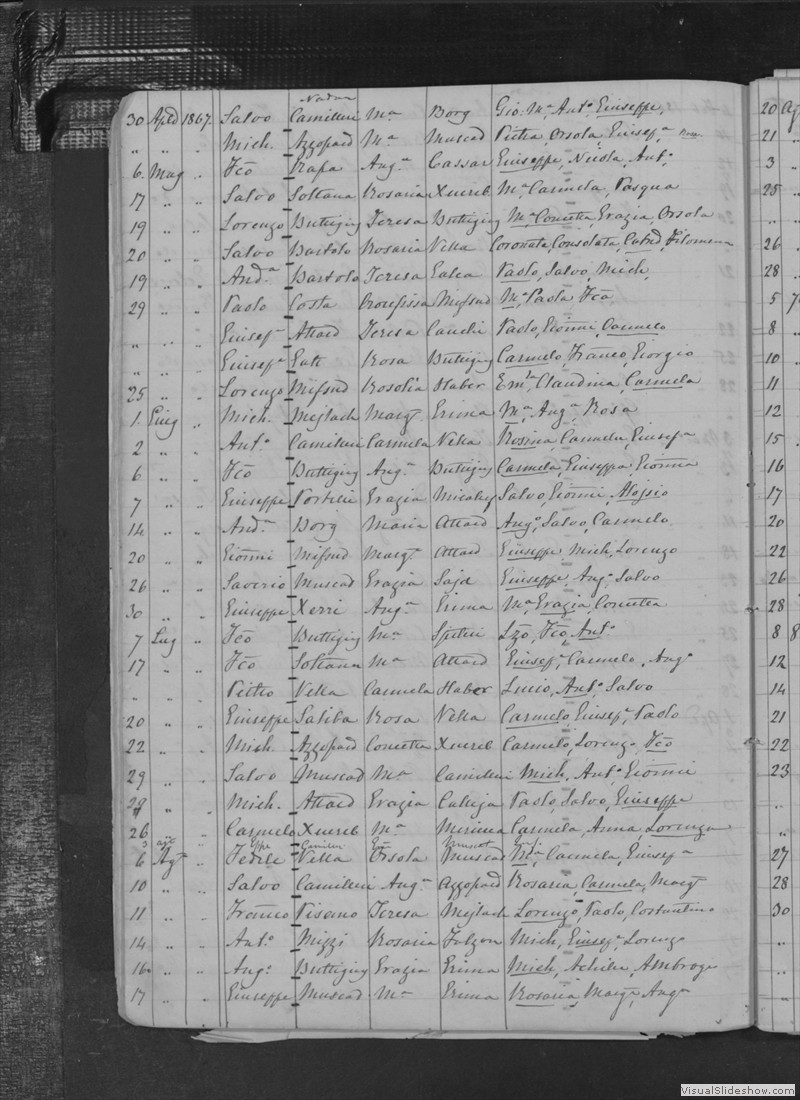 30 Apl 1867 Salvo Camilleri Ma Borg Gio. Ma, Anto, Giuseppe,
" " " Mich. Azzopard Ma Muscad Pietra, Orsola, Giusepa
6 Mag " Fco Rapa Anga Cassar Giuseppe, Nicola, Anto,
17 " " Salvo Soltana Rosaria Xuereb Ma Carmela, Pasqua
19 " " Lorenzo Buttigieg Teresa Buttigieg Ma Concetta, Grazia, Orsola
20 " " Salvo Bartolo Rosaria Vella Coronata, Consolata, Filomena
19 " " Anda Bartolo Teresa Galea Paolo, Salvo, Mich,
29 " " Paolo Costa Mifsud Ma Paola Fca
" " " Attard Teresa Paolo, Gionni, Carmelo
" " " Rosa Buttigieg Carmelo, Franco, Giorgio
25 " " Lorenzo Mifsud Rosolia Haber Claudina, Carmela
1 Giug " Mich. Mejlach Margt Grima Ma, Anga, Rosa
2 " " Anto Camilleri Carmela Vella Rosina, Carmela, Giusepa
6 " " Fco Buttigieg Anga Buttigieg Carmela, Giuseppa, Gionna
7 " " Giuseppe Portelli Grazia Micalef Salvo, Gionni, Alojsio
14 " " Anda Borg Maria Attard Ango, Salvo, Carmelo
20 " " Gionni Mifsud Margt Attard Giuseppe Mich, Lorenzo
26 " " Saverio Muscad Grazia Sajd Giuseppe, Ango, Salvo
30 " " Giuseppe Xerri Anga Grima Ma, Grazia, Concetta
7 Lug " Fco Buttigieg Ma Spiteri Lzo, Fco, Anto
17 " " Fco Soltana Ma Attard Carmelo, Ango
" " " Pietro Vella Carmela Haber Anto, Salvo
20 " " Giuseppe Saliba Rosa Vella Carmelo, Paolo
22 " " Mich. Azzopard Concetta Xuereb Carmelo, Lorenzo, Fco
29 " " Salvo Muscad Ma Camilleri Mich, Anto, Gionni
" " Mich. Attard Grazia Paolo, Salvo, Giuseppe
26 " " Carmelo Xuereb Ma Carmela, Anna, Lorenza
6 Agto " Vella Orsola Muscad Ma, Carmela, Giusepa
10 " " Salvo Camilleri Anga Azzopard Rosaria, Carmela, Margt
11 " " Franco Pisano Teresa Mejlach Lorenzo, Paolo, Costantino
14 " " Anto Mizzi Rosaria Falzon Mich, Lorenzo
16 " " Ango Buttigieg Grazia Grima Mich, Achille, Ambrogo
17 " " Giuseppe Muscad Ma Grima Rosaria, Marga, Anga
20
21
3
25
"
26
28
5
8
10
11
12
15
16
17
20
22
26
28
8
12
14
21
22
23
"
"
27
28
30
"
"
"
VisualSlideshow.com